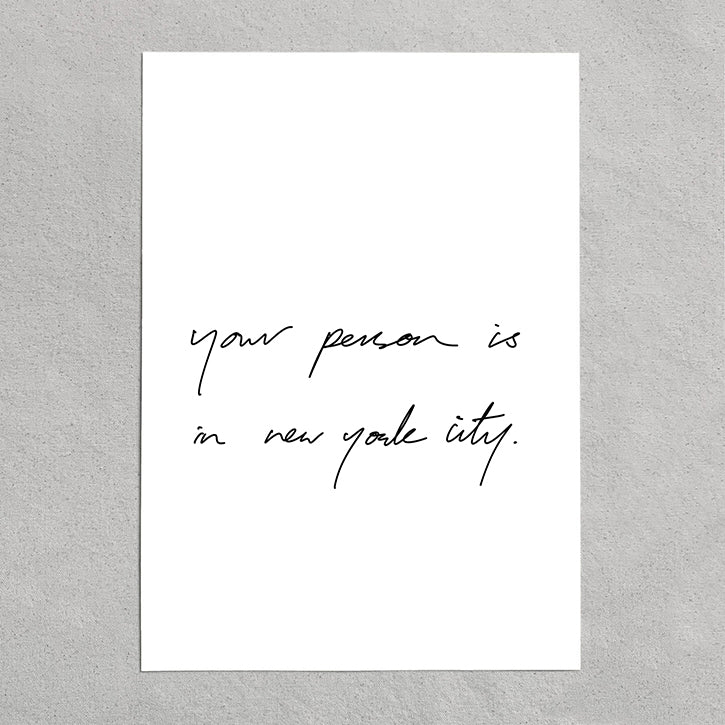 your person is
in new york city.